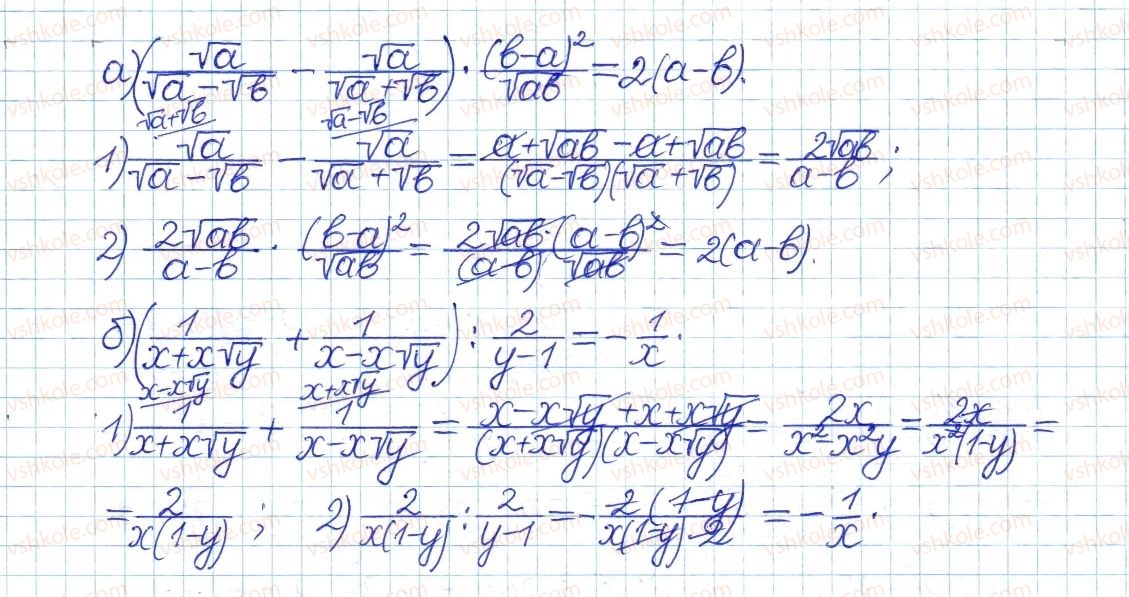 а) (√a/(√a − √b) − √a/(√a + √b)) · (b−a)²/√ab = 2(a−b).
√a+√b √a−√b
1) √a/(√a − √b) − √a/(√a + √b) = (a + √ab − a + √ab)/((√a−√b)(√a+√b)) = 2√ab/(a−b);
2) 2√ab/(a−b) · (b−a)²/√ab = 2√ab·(a−b)²/((a−b)√ab) = 2(a−b).
б) (1/(x+x√y) + 1/(x−x√y)) : 2/(y−1) = −1/x.
x−x√y x+x√y
1) 1/(x+x√y) + 1/(x−x√y) = (x−x√y+x+x√y)/((x+x√y)(x−x√y)) = 2x/(x²−x²y) = 2x/(x²(1−y)) =
= 2/(x(1−y)); 2) 2/(x(1−y)) : 2/(y−1) = −2(1−y)/(x(1−y)·2) = −1/x.